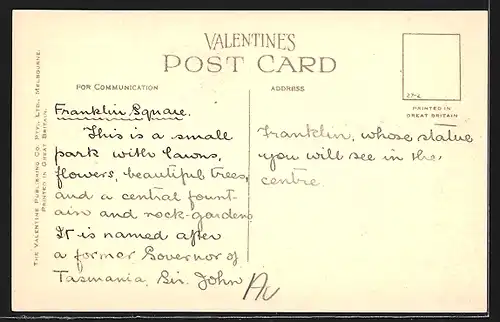 VALENTINE'S
POST CARD
FOR COMMUNICATION
ADDRESS
2712
PRINTED IN
GREAT BRITAIN
THE VALENTINE PUBLISHING CO. PTY., LTD., MELBOURNE.
PRINTED IN GREAT BRITAIN.
Franklin Square.
This is a small
park with lawns,
flowers, beautiful trees,
and a central fount-
ain and rock-garden
It is named after
a former Governor of
Tasmania, Sir. John
Franklin, whose statue
you will see in the
centre.
Au